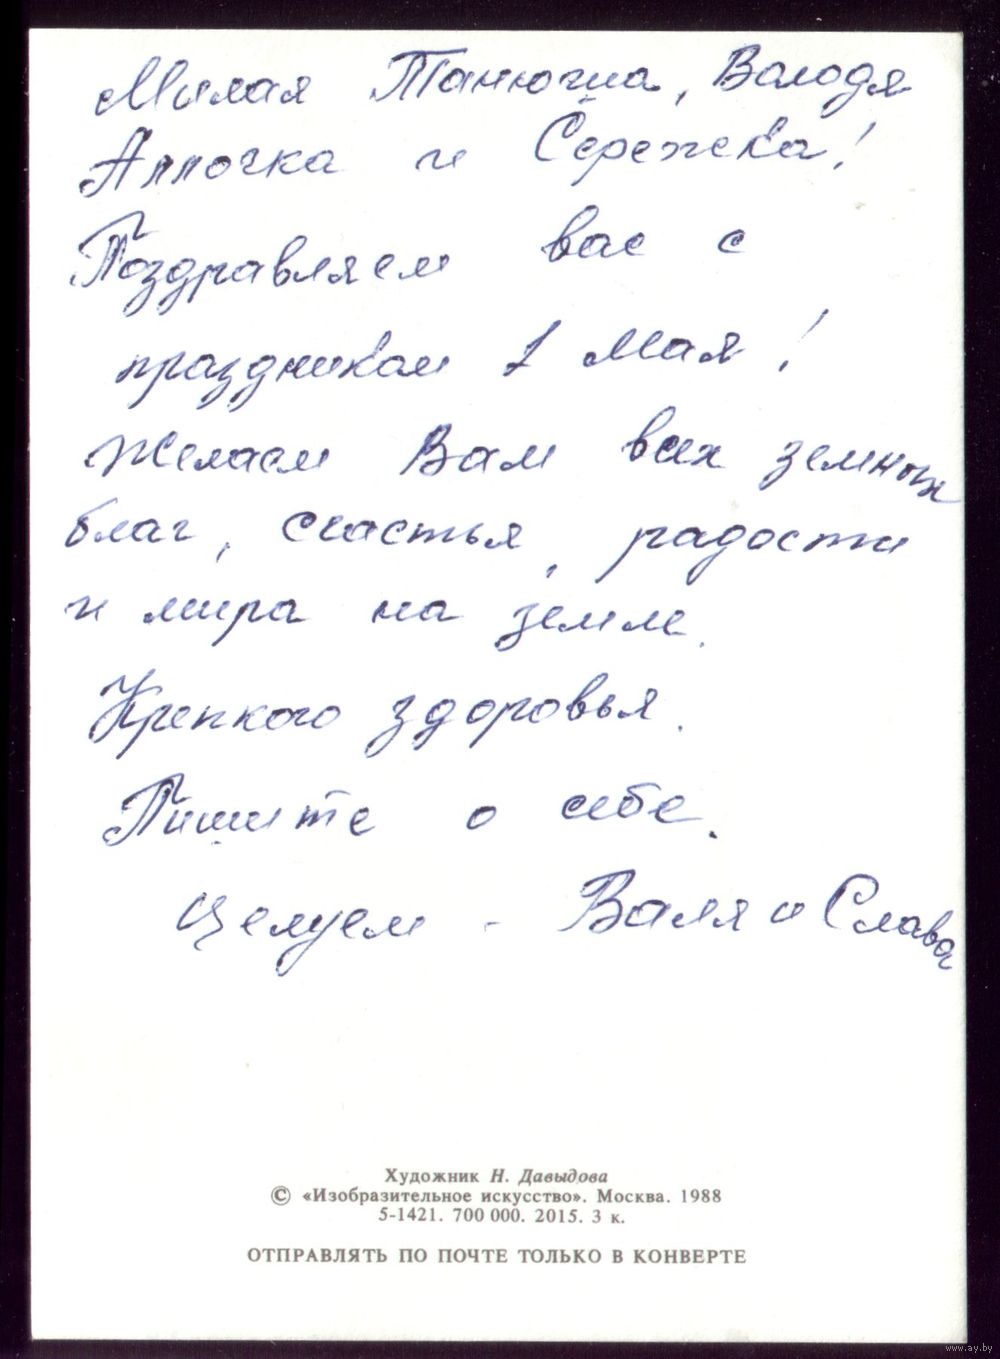 Милая Танюша, Володя
Аллочка и Сережка!
Поздравляем вас с
праздником 1 Мая!
Желаем Вам всех земных
благ, счастья, радости
и мира на земле.
Крепкого здоровья.
Пишите о себе.
Целуем - Валя и Слава
Художник Н. Давыдова
© «Изобразительное искусство». Москва. 1988
5-1421. 700 000. 2015. 3 к.
ОТПРАВЛЯТЬ ПО ПОЧТЕ ТОЛЬКО В КОНВЕРТЕ
www.ay.by